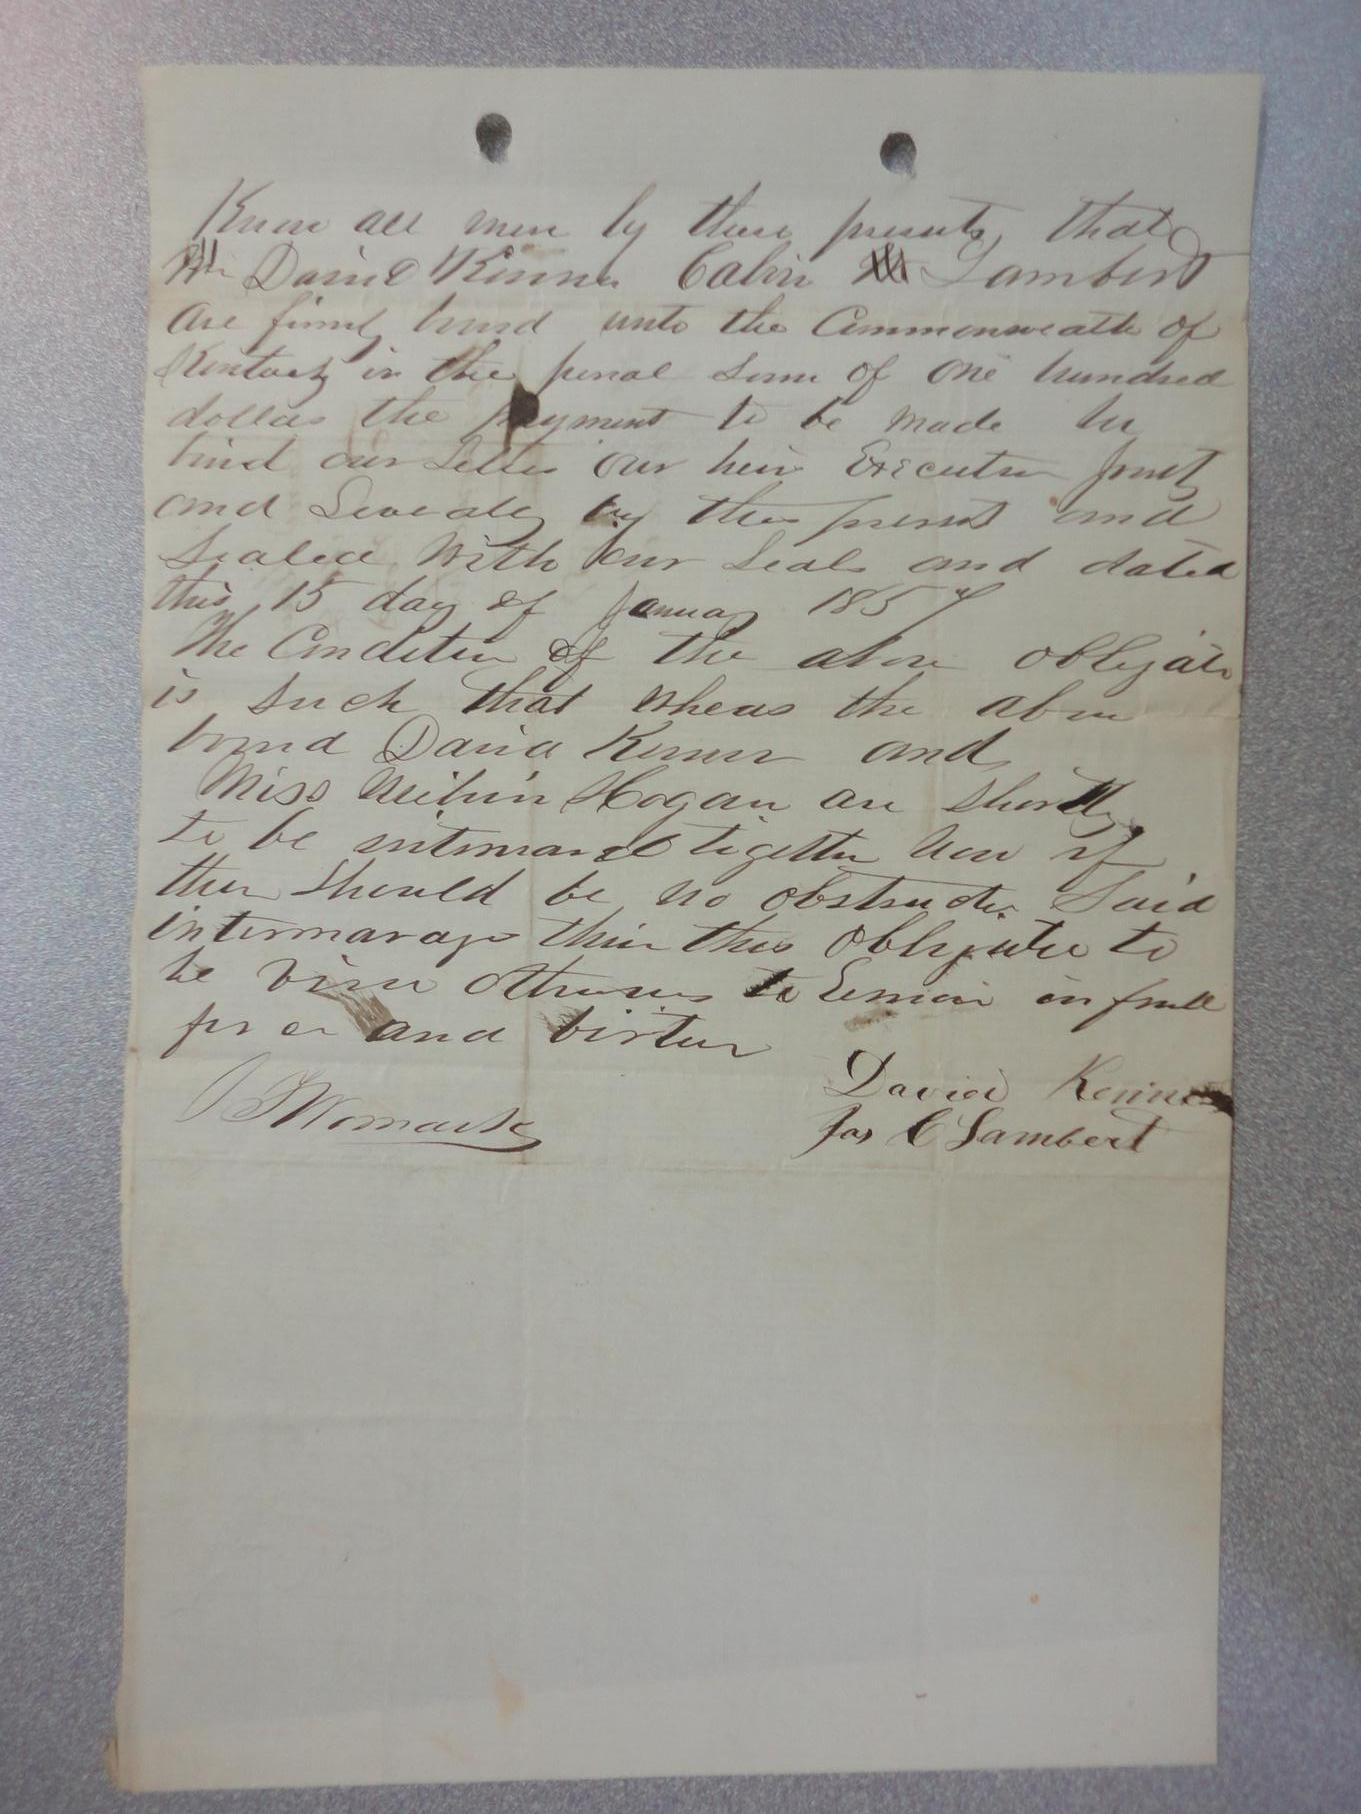 Know all men by these presents, that
We David Kinner Calvin Lambert
are firmly bound unto the Commonwealth of
Kentucky in the penal sum of one hundred
dollars the payment to be made we
bind our selves our heirs Executors jointly
and Severaly by these presents and
Sealed With our Seals and dated
this 15 day of January 1857
The Condition of the above obligation
is such that wheas the above
bound David Kinner and
Miss Hogan are shortly
to be intermared together Now if
ther should be no obstruction Said
intermarage then this obligation to
be othrwise to Remain in full
and birtue
Womack
David Kinner
Jas C Lambert